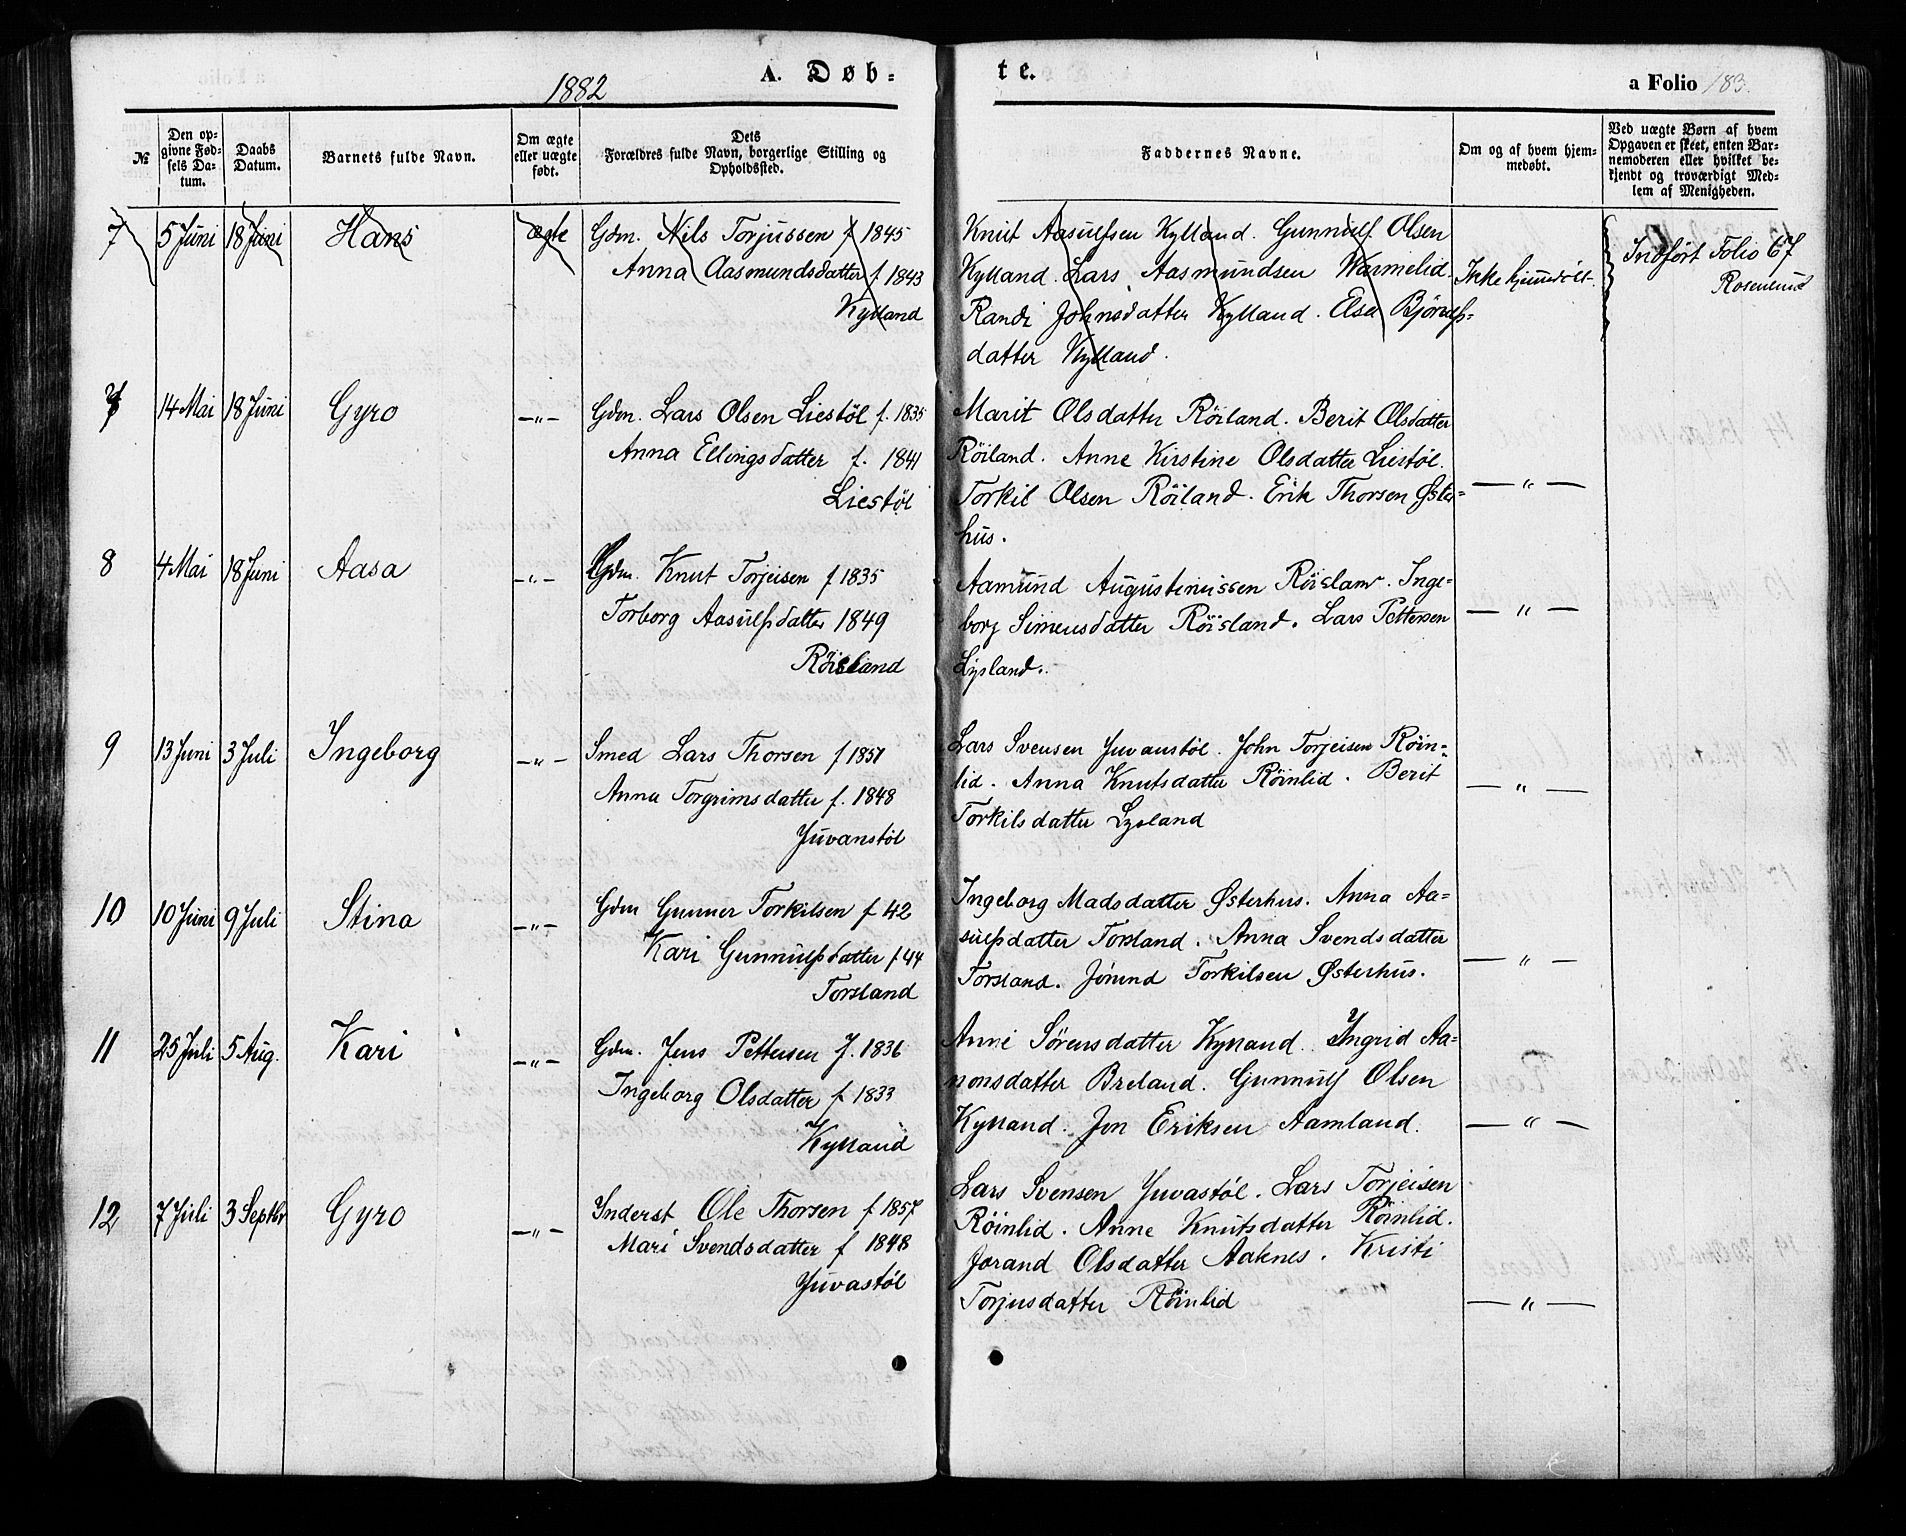 1882
A. Døb-
te.
a Folio 183.
№
Den op-
givne Fød-
sels Da-
tum.
Daabs
Datum.
Barnets fulde Navn.
Om ægte
eller uægte
født.
Dets
Forældres fulde Navn, borgerlige Stilling og
Opholdssted.
Faddernes Navne.
Om og af hvem hjem-
medøbt.
Ved uægte Børn af hvem
Opgaven er skeet, enten Bar-
nemoderen eller hvilket be-
kjendt og troværdigt Med-
lem af Menigheden.
7 5 Juni 18 Juni Hans ægte
Gdm. Nils Torjussen f 1845
Anna Aasmundsdatter f 1843
Kylland
Knut Aasulfsen Kylland. Gunnulf Olsen
Kylland. Lars Aasmundsen Warmelid.
Randi Johnsdatter Kylland. Elsa Bjørulfs-
datter Kylland.
Ikke hjemmedøbt.
Indført Folio 67
7 14 Mai 18 Juni Gyro —"—
Gdm. Lars Olsen Liestøl f. 1835
Anna Ellingsdatter f. 1841
Liestøl
Marit Olsdatter Röiland. Berit Olsdatter
Röiland. Anne Kirstine Olsdatter Liestøl.
Torkil Olsen Röiland. Erik Thorsen Øster-
hus.
—"—
8 4 Mai 18 Juni Aasa —"—
Gdm. Knut Torjeisen f 1835
Torborg Aasulfsdatter 1849
Röisland
Aamund Augustinussen Röisland. Inge-
borg Simensdatter Röisland. Lars Pettersen
Lysland.
—"—
9 13 Juni 3 Juli Ingeborg —"—
Smed Lars Thorsen f 1851
Anna Torgrimsdatter f. 1848
Juvanstøl
Lars Svensen Juvanstøl. John Torjeisen Röin-
lid. Anna Knutsdatter Röinlid. Berit
Torkilsdatter Lysland
—"—
10 10 Juni 9 Juli Stina —"—
Gdm Gunner Torkilsen f 42
Kari Gunnulfsdatter f 44
Torsland
Ingeborg Madsdatter Østerhus. Anna Aa-
sulfsdatter Torsland. Anna Svendsdatter
Torsland. Jörund Torkilsen Østerhus.
—"—
11 25 Juli 5 Aug. Kari —"—
Gdm. Jens Pettersen f. 1836
Ingeborg Olsdatter f 1833
Kylland
Anne Sörensdatter Kylland. Yngrid Aa-
nonsdatter Breland. Gunnulf Olsen
Kylland. Jon Eriksen Aamland.
—"—
12 7 Juli 3 Septbr Gyro —"—
Inderst Ole Thorsen f 1857
Mari Svendsdatter f 1848
Juvastøl
Lars Svensen Juvastøl. Lars Torjeisen
Röinlid. Anne Knutsdatter Röinlid.
Jorand Olsdatter Aaknes. Kristi
Torjusdatter Röinlid
—"—